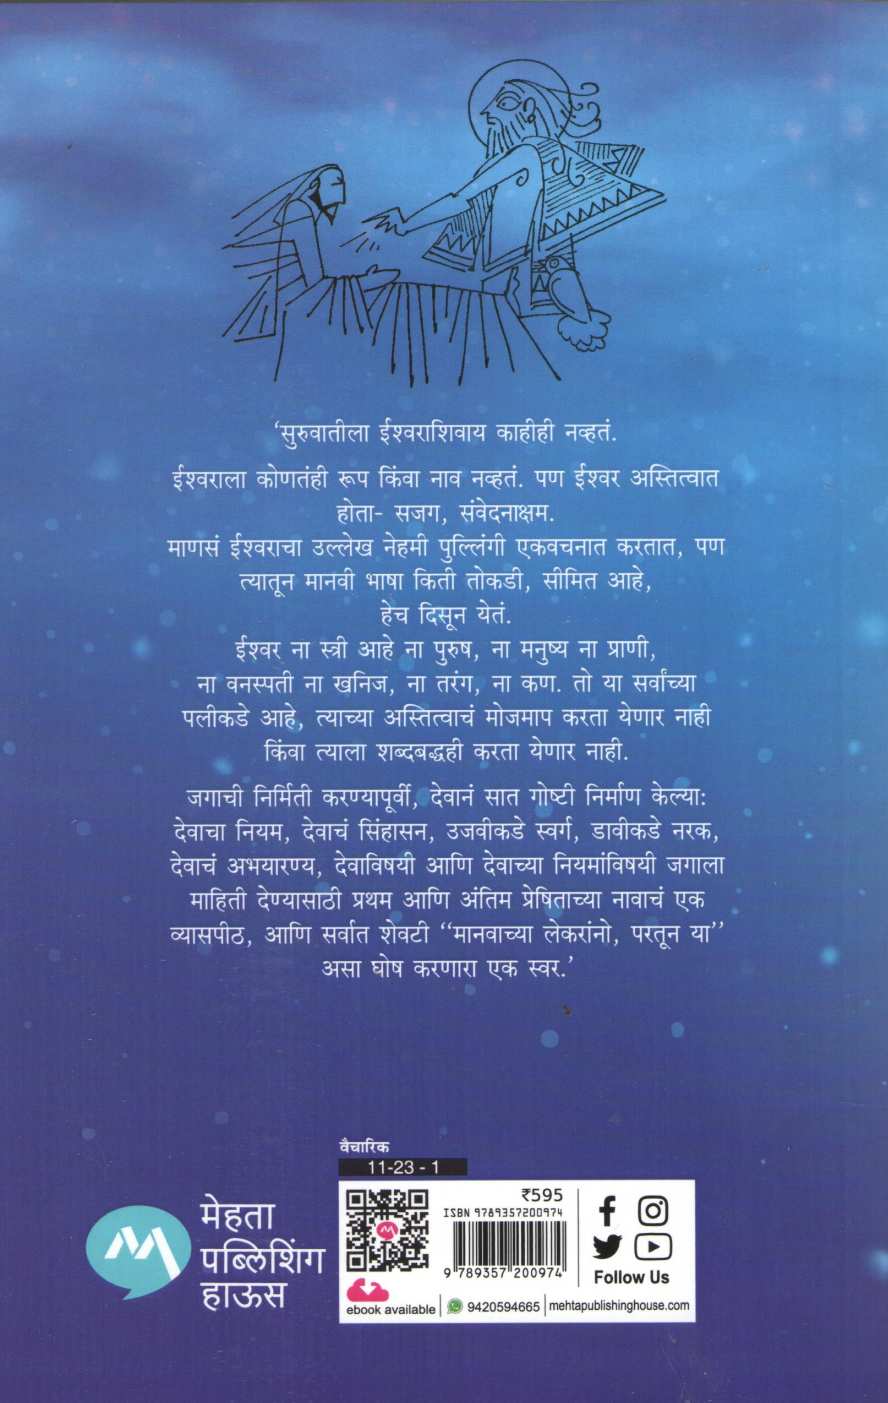 ‘सुरुवातीला ईश्वराशिवाय काहीही नव्हतं.
ईश्वराला कोणतंही रूप किंवा नाव नव्हतं. पण ईश्वर अस्तित्वात
होता- सजग, संवेदनाक्षम.
माणसं ईश्वराचा उल्लेख नेहमी पुल्लिंगी एकवचनात करतात, पण
त्यातून मानवी भाषा किती तोकडी, सीमित आहे,
हेच दिसून येतं.
ईश्वर ना स्त्री आहे ना पुरुष, ना मनुष्य ना प्राणी,
ना वनस्पती ना खनिज, ना तरंग, ना कण. तो या सर्वांच्या
पलीकडे आहे, त्याच्या अस्तित्वाचं मोजमाप करता येणार नाही
किंवा त्याला शब्दबद्धही करता येणार नाही.
जगाची निर्मिती करण्यापूर्वी, देवानं सात गोष्टी निर्माण केल्या:
देवाचा नियम, देवाचं सिंहासन, उजवीकडे स्वर्ग, डावीकडे नरक,
देवाचं अभयारण्य, देवाविषयी आणि देवाच्या नियमांविषयी जगाला
माहिती देण्यासाठी प्रथम आणि अंतिम प्रेषिताच्या नावाचं एक
व्यासपीठ, आणि सर्वात शेवटी ‘‘मानवाच्या लेकरांनो, परतून या’’
असा घोष करणारा एक स्वर.’
वैचारिक
11-23 - 1
मेहता
पब्लिशिंग
हाऊस
₹595
ISBN 9789357200974
9 789357 200974
Follow Us
ebook available
9420594665
mehtapublishinghouse.com